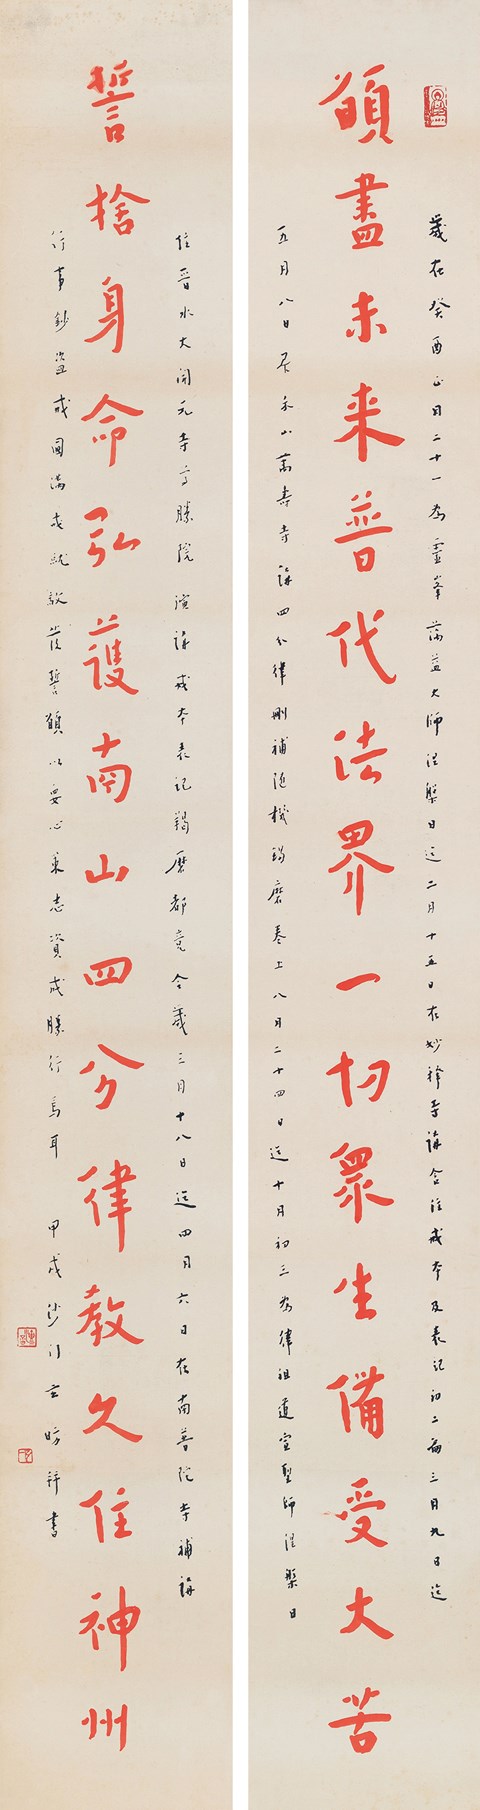 願盡未来普代法界一切眾生備受大苦
歲在癸酉正月二十一為靈峯蕅益大師涅槃日迄二月十五日在妙釋寺講含注戒本及表記初二兩三月九日迄
五月八日居禾山萬壽寺講四分律刪補隨機羯磨卷上八月二十四日迄十月初三為律祖道宣聖師涅槃日
誓捨身命弘護南山四分律教久住神州
住晉水大開元寺尊勝院演講戒本表記羯磨都竟今歲三月十八日迄四月六日在南普陀寺補講
行事鈔盜戒圓滿成就敬發誓願以要心東志資成勝行焉耳 甲戌沙門 書